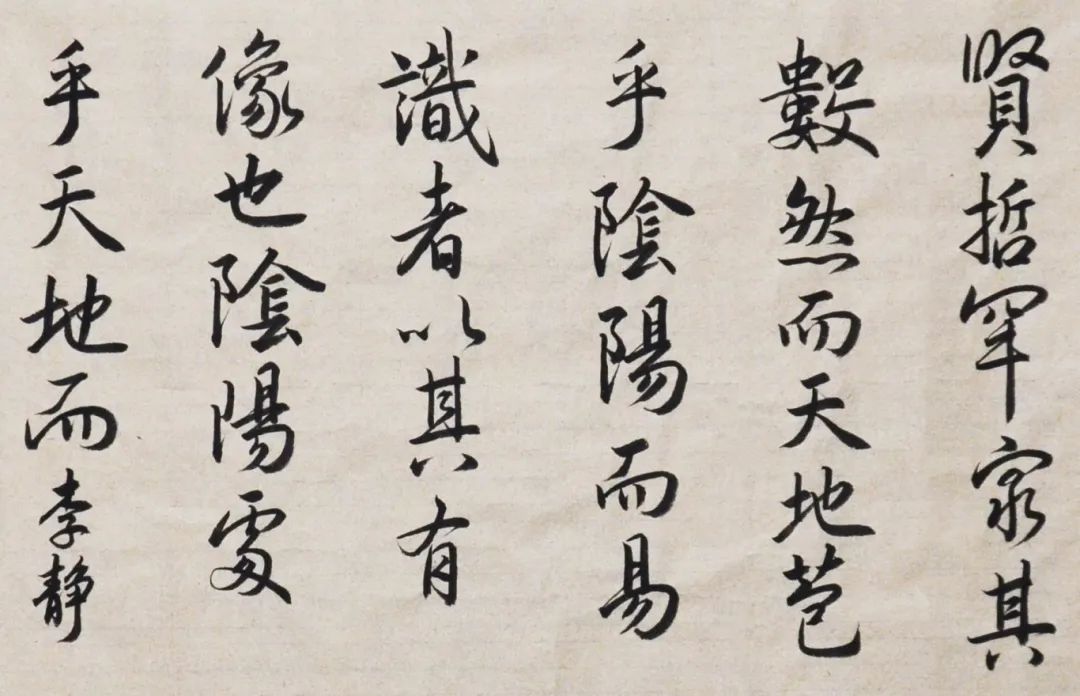 賢哲罕窮其
數然而天地苞
乎陰陽而易
識者以其有
像也陰陽處
乎天地而李静